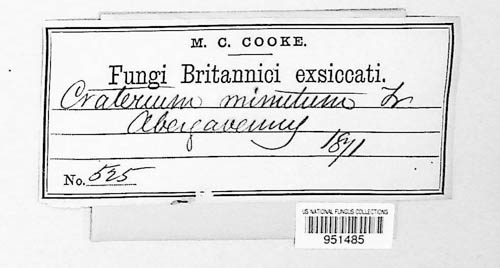 M. C. COOKE.
Fungi Britannici exsiccati.
Craterium minutum Fr
Abergavenny
1871
No. 525
US NATIONAL FUNGUS COLLECTIONS
951485